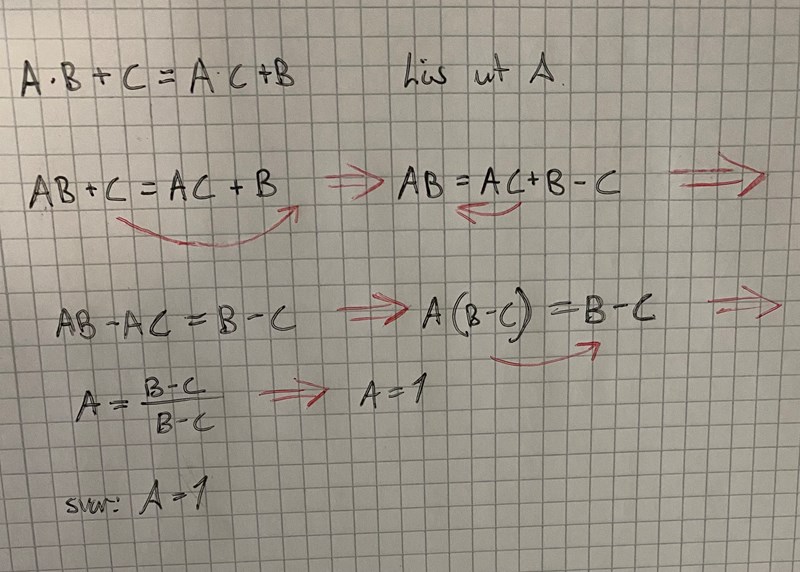 A·B + C = A·C + B Lös ut A.
AB + C = AC + B ⇒ AB = AC + B - C ⇒
AB - AC = B - C ⇒ A(B-C) = B - C ⇒
A = (B-C)/(B-C) ⇒ A = 1
svar: A = 1